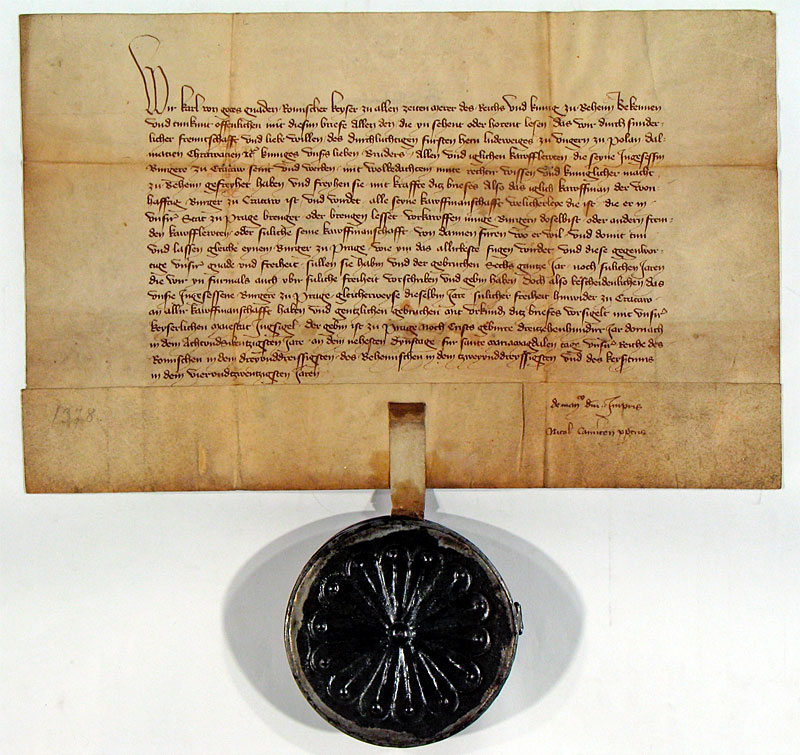 Wir karl von gotes gnaden Romischer keyser zu allen zeiten merer des Reichs und kunig zu Beheim Bekennen
und tun kunt offenlichen mit diesem briefe allen den die yn sehent oder horent lesen das wir durch sunder-
licher freuntschafft und liebe willen des durchluchtigen fursten hern ludeweiges zu ungern zu Polan dal-
macien kuniges unsers lieben Bruders allen und iglichen kawffleuten die seyne Ingesessin
Burgere zu Cracaw seint und werden mit wolbedachtem mute rechter wissen und kuniglicher macht
zu Beheim gefreyhet haben und freyhen sie mit kraffte ditz briefes Also das iglich kawffman der won-
hafftig Burger zu Cracaw ist und wirdet alle seyne kawffmanschafft welicherleye die ist die er in
unsir Stat zu Prage brenget oder brengen lesset vorkawffen muge Burgern doselbist oder andern frem-
den kawffleuten oder suliche seine kawffmanschafft von dannen furen wo er wil und domit tun
und lassen gleiche eynem Burger zu Prage wie yn das allirbeste fugen wirdet und diese gegenwor-
tige unsir gnade und freiheit sullen sie haben und der gebruchen Sechs gantze Jar noch sulichen Jaren
die wir yn furmals auch ubir suliche freiheit vorschriben und gebin haben doch also bescheidenlichen das
unsir Ingesessene Burgere zu Prage gleicherweyse dieselbin Jare sulicher freiheit hinwider zu Cracaw
an allir kawffmanschafft haben und gentzlichen gebruchen mit urkund ditz briefes vorsigelt mit unsir
keyserlichen maiestat Ingesigel der gebin ist zu Prage noch Crists geburte dreitzehenhundirt jar dornach
in dem achtundsibentzigsten Jare an dem nehesten dynstage fur sante maria magdalen tage unsir Reiche des
Romischen in dem dreyunddreissigsten des Behemischen in dem tzweyunddreyssigsten und des keysertums
in dem vierundtzwentzigsten Jaren
de mandato dni Imperatoris
Nicol Camericen ppositus
1378